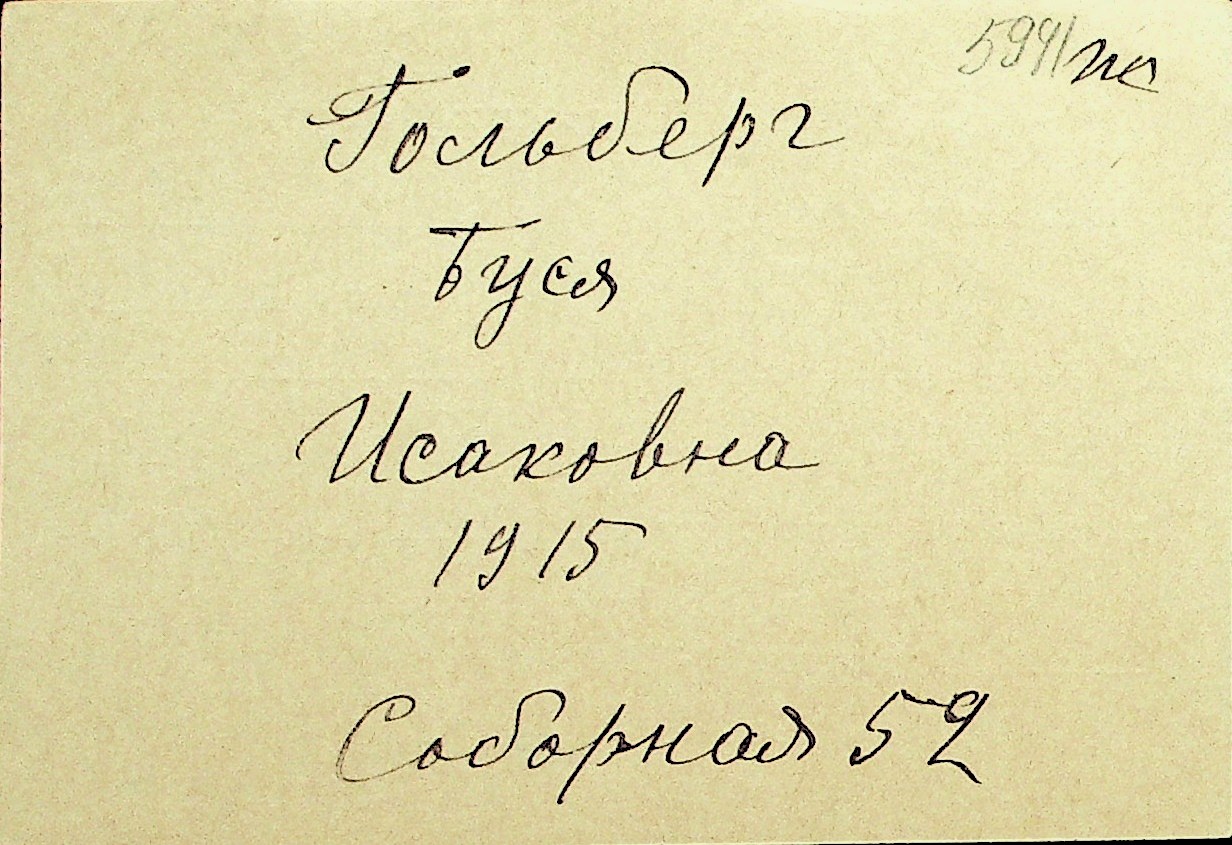 Гольберг
Буся
Исаковна
1915
Соборная 52